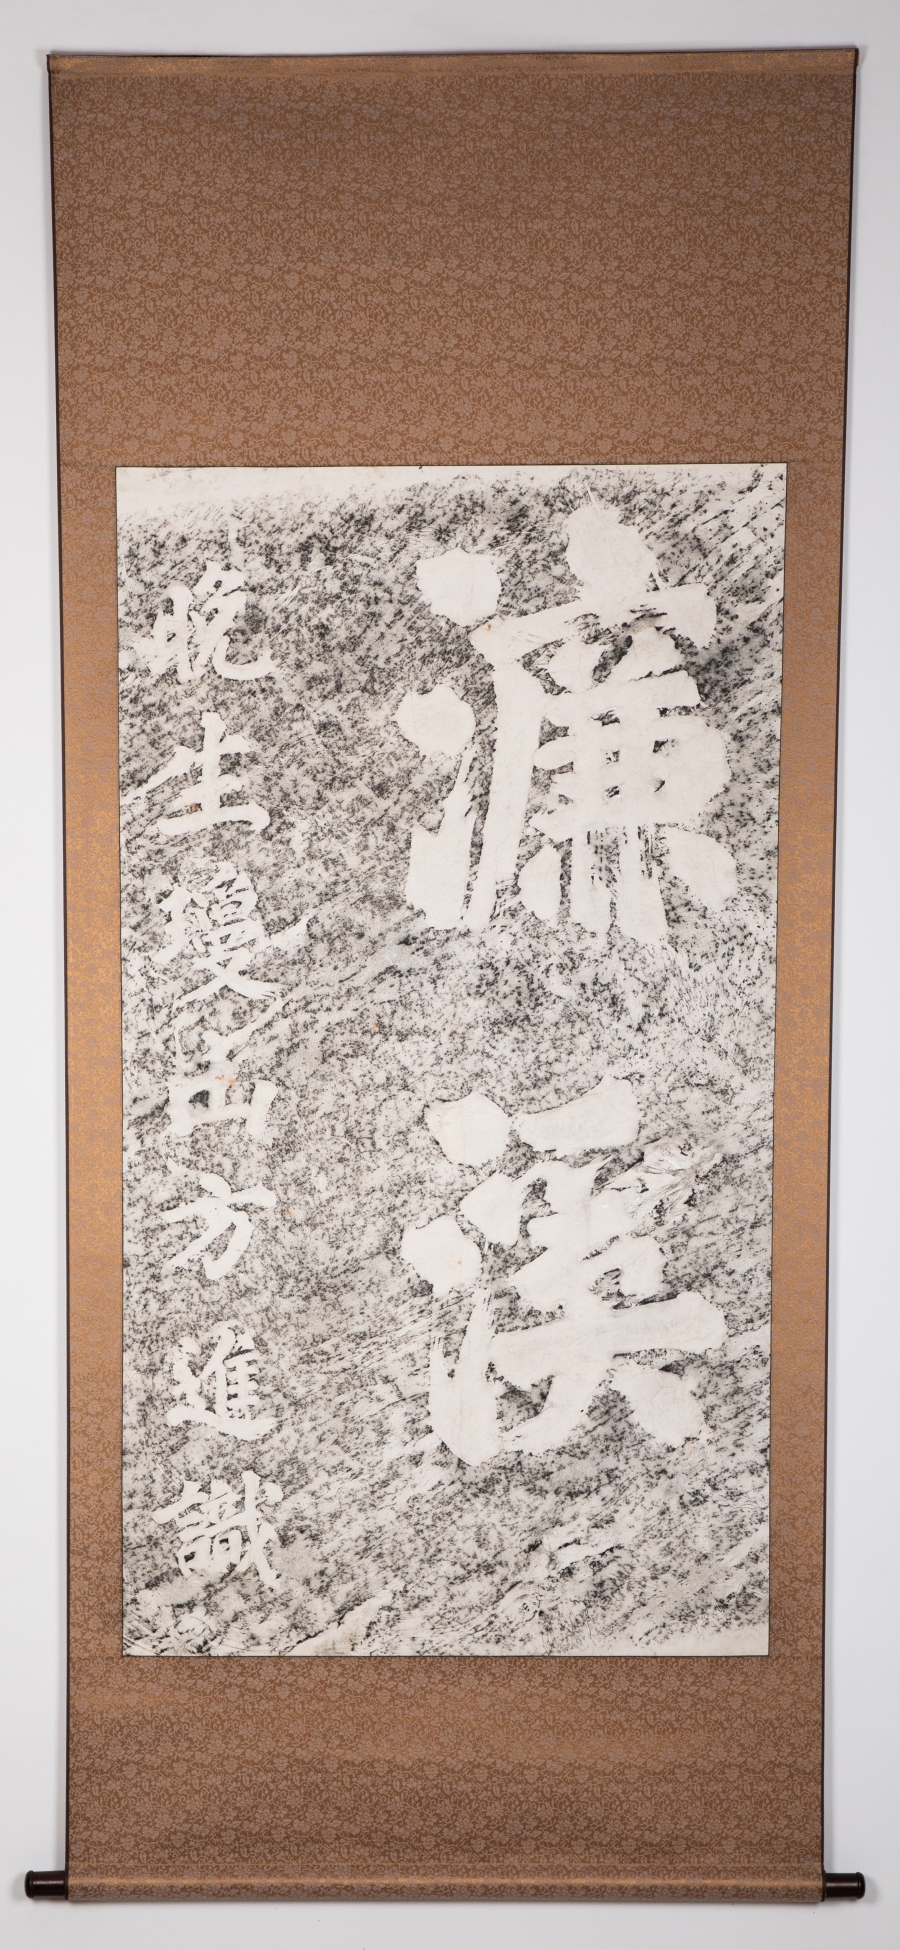 濂溪
晚生雙山方進識